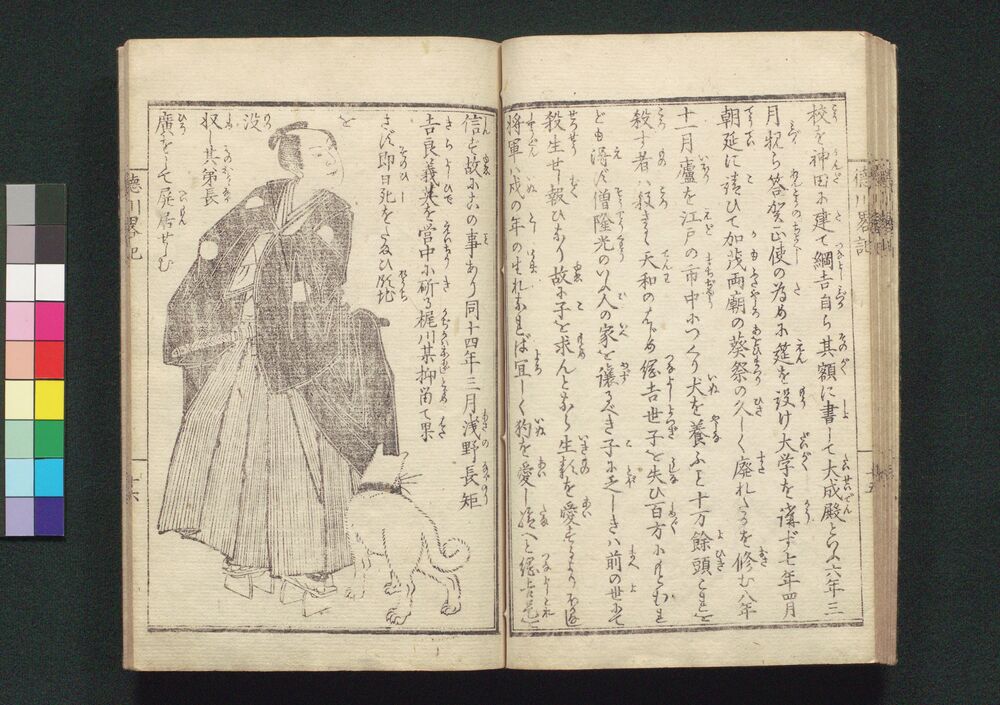 校を神田に建て綱吉自ら其額に書して大成殿といふ六年三
月勅答賀正使の為めに筵を設け大学を講ず七年四月
朝廷に請ひて加茂両廟の葵祭の久しく廃れたるを修む八年
十一月廬を江戸の市中につくり犬を養ふこと十万餘頭これを
殺す者は殺さる天和のはじめ綱吉世子を失ひ百方にもとむれ
ども得ず僧隆光のいふ人の家を譲るべき子に乏しきは前の世にて
殺生せし報ひなり故に子を求んとならば生類を愛するよりよきはなし
将軍は戌の年の生れなれば宜しく狗を愛し給へと綱吉是を
信ず故に此の事あり同十四年三月浅野長矩
吉良義英を営中に斫る梶川某抑留て果
さず即日死をたまひ封地
を
没
収其弟長
廣をして屏居せむ
徳川畧記
十五
徳川畧記
十六